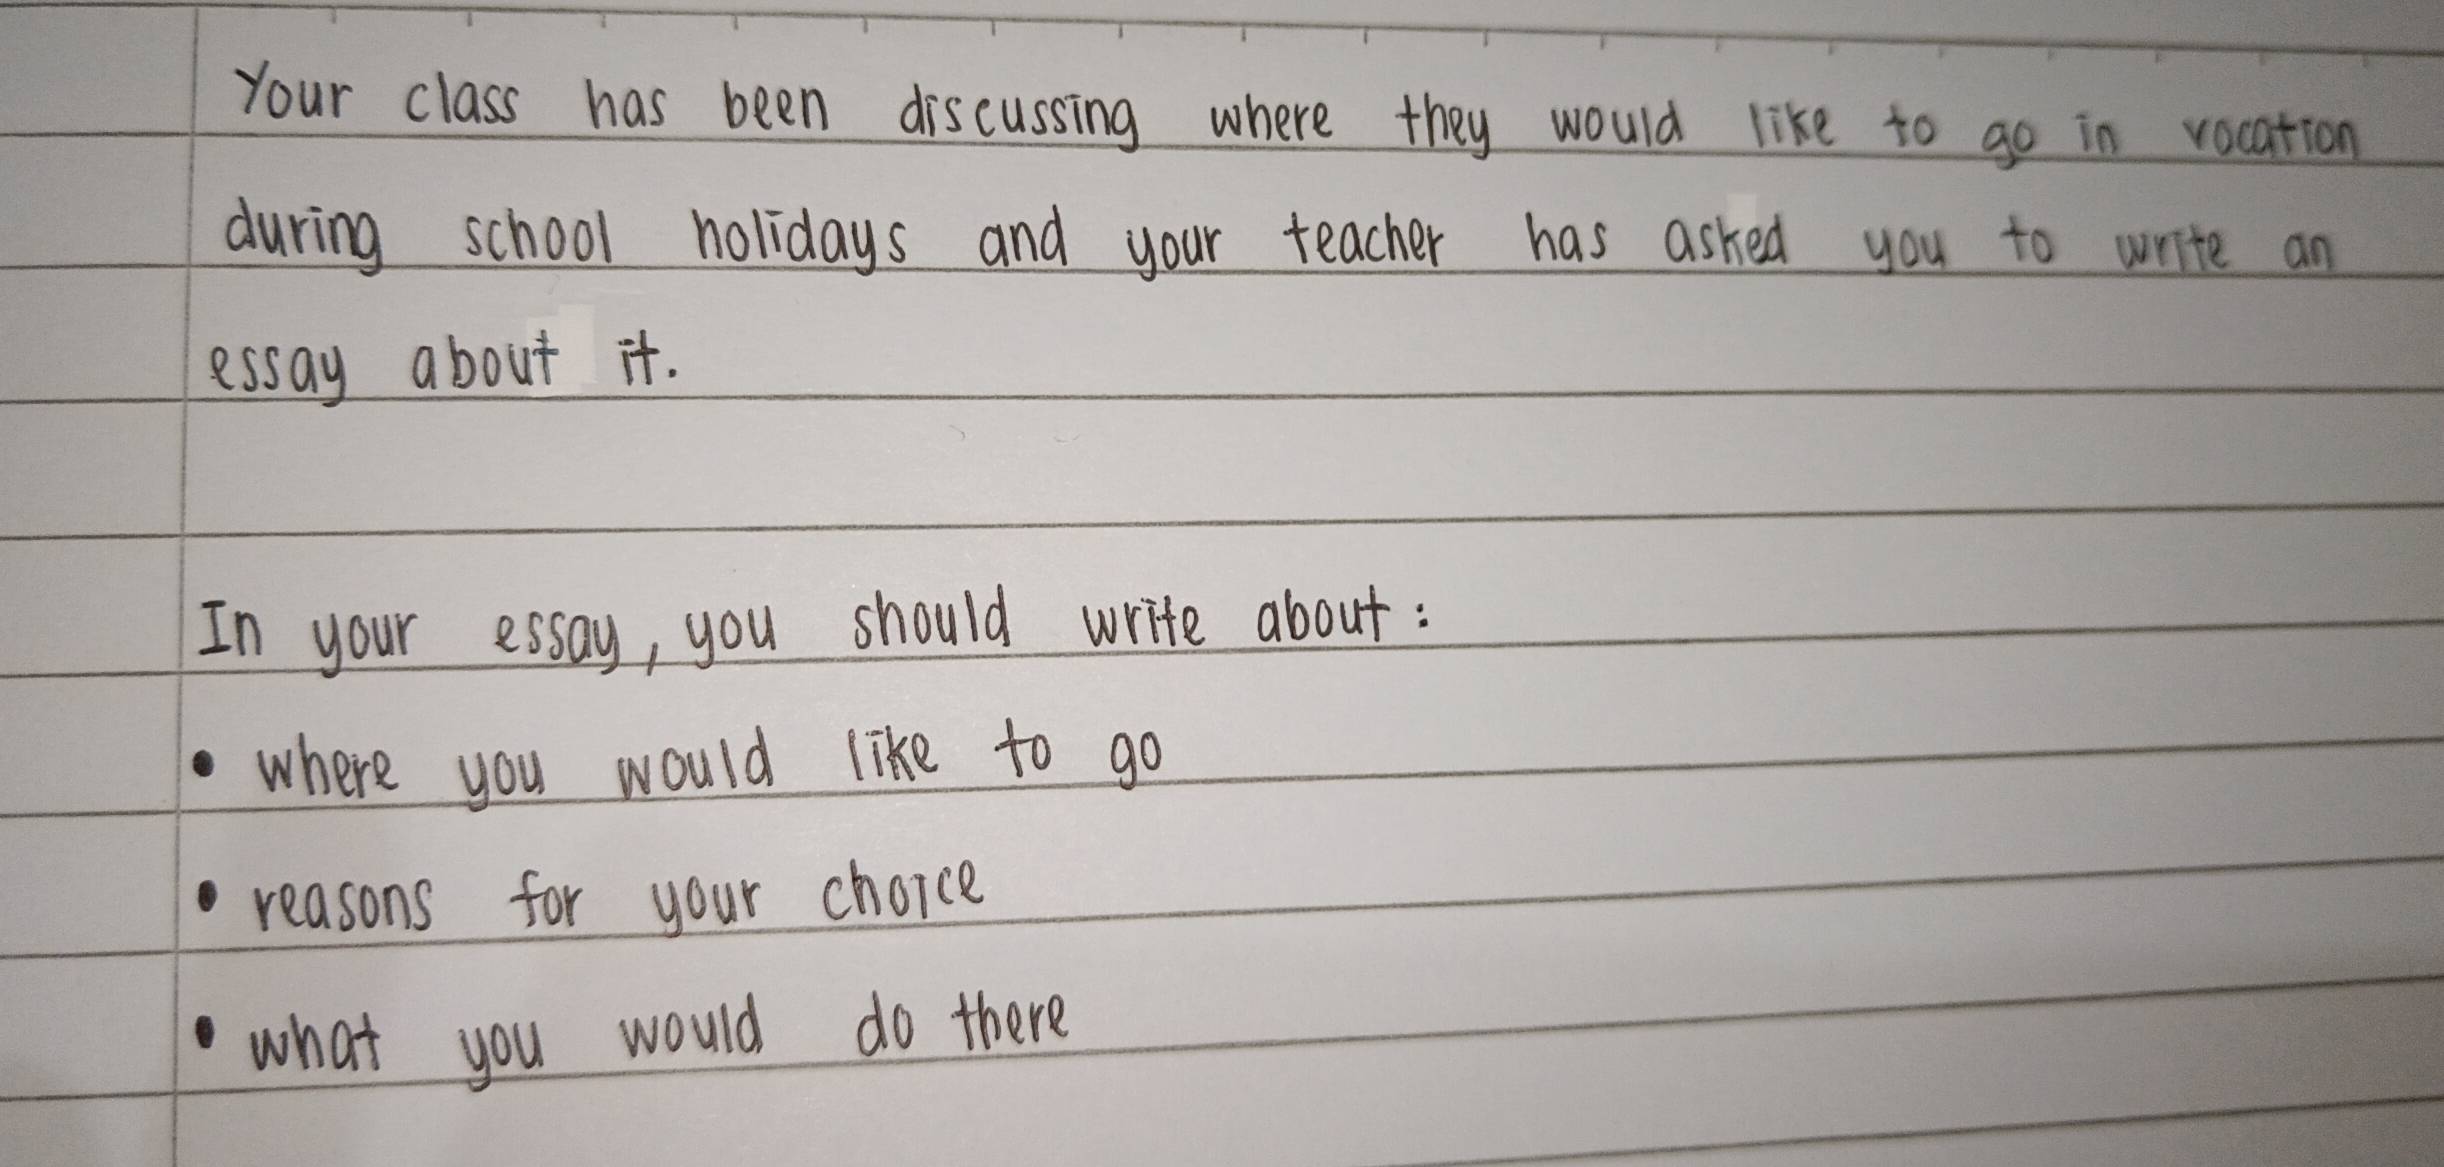 Your class has been discussing where they would like to go in vocation
during school holidays and your teacher has asked you to write an
essay about it.
In your essay, you should write about:
• where you would like to go
• reasons for your choice
• what you would do there